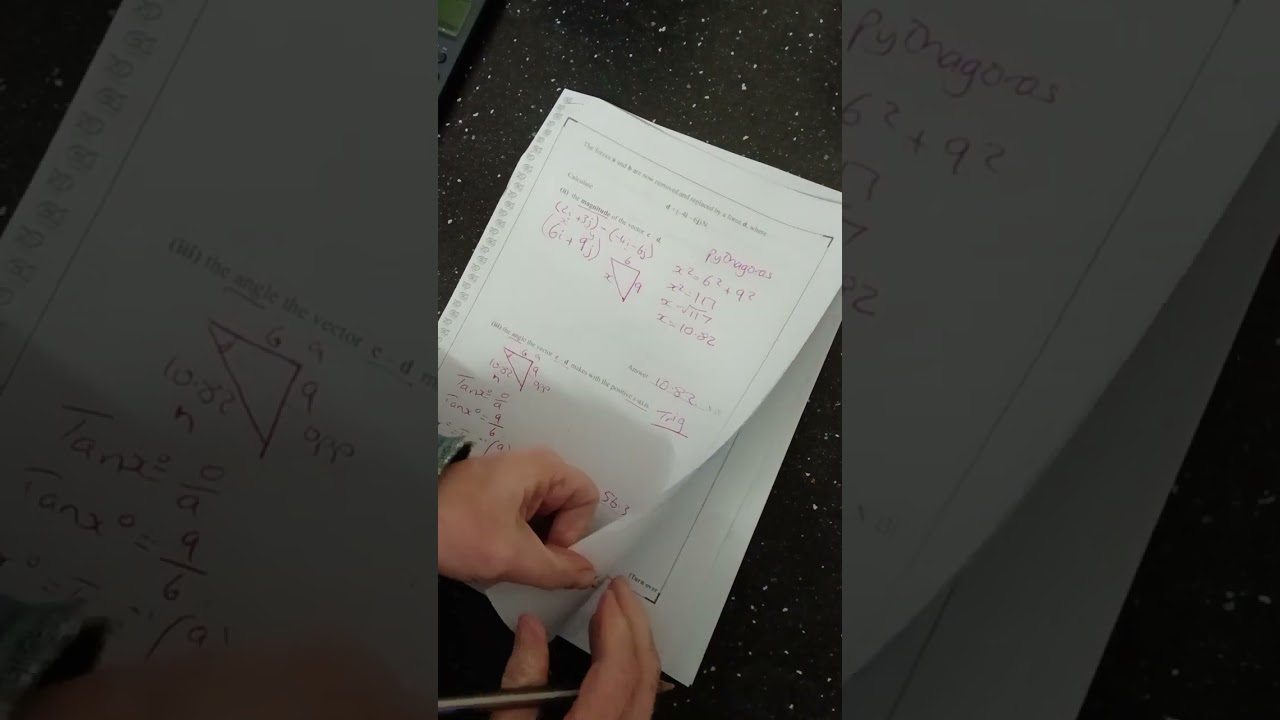 The forces a and b are now removed and replaced by a force d, where
d = (-4i - 6j) N.
Calculate
(ii) the magnitude of the vector c - d,
(2i + 3j) - (-4i - 6j)
(6i + 9j)
6
x
9
Pythagoras
x² = 6² + 9²
x² = 117
x = √117
x = 10.82
Answer 10.82 N
(iii) the angle the vector c - d makes with the positive x-axis.
6 a
9
10.82
h
opp
Trig
Tanx° = o/a
Tanx° = 9/6
56.3
[Turn over